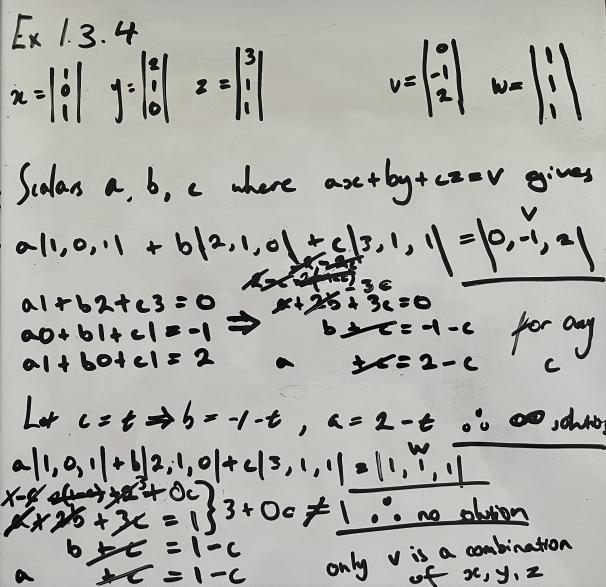 Ex 1.3.4
x = |1 0 1| y = |2 1 0| z = |3 1 1| v = |0 -1 2| w = |1 1 1|
Scalars a, b, c where ax+by+cz=v gives
v
a|1, 0, 1| + b|2, 1, 0| + c|3, 1, 1| = |0, -1, 2|
3c
a1 + b2 + c3 = 0 a + 2b + 3c = 0
a0 + b1 + c1 = -1 ⇒ b + c = -1 - c for any
a1 + b0 + c1 = 2 a + c = 2 - c c
Let c = t ⇒ b = -1 - t, a = 2 - t ∴ ∞ solutions
w
a|1, 0, 1| + b|2, 1, 0| + c|3, 1, 1| = |1, 1, 1|
3 + 0c
a + 2b + 3c = 1 } 3 + 0c ≠ 1 ∴ no solution
b + c = 1 - c
a + c = 1 - c
only v is a combination
of x, y, z